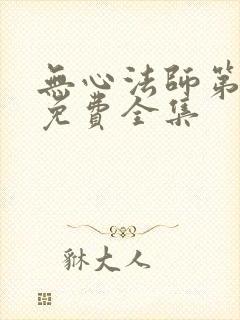 無心法師第
免費全集
貅大人